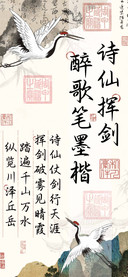 诗仙挥剑
醉歌笔墨楷
诗仙仗剑行天涯
挥剑破雾见晴霞
踏遍千山万水
纵览川泽丘岳